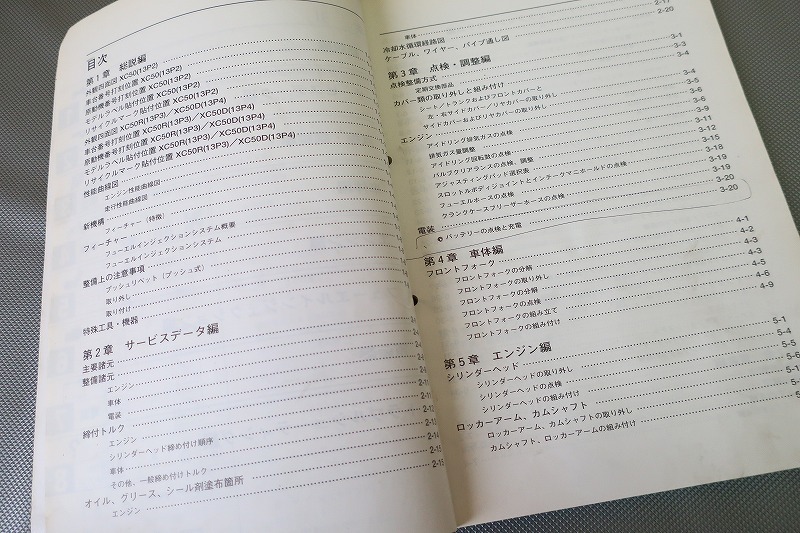 目次
第1章 総説編
外観四面図 XC50(13P2)
車台番号打刻位置 XC50(13P2)
原動機番号打刻位置 XC50(13P2)
モデルラベル貼付位置 XC50(13P2)
リサイクルマーク貼付位置 XC50(13P2)
外観四面図 XC50R(13P3)／XC50D(13P4)
車台番号打刻位置 XC50R(13P3)／XC50D(13P4)
原動機番号打刻位置 XC50R(13P3)／XC50D(13P4)
モデルラベル貼付位置 XC50R(13P3)／XC50D(13P4)
リサイクルマーク貼付位置 XC50R(13P3)／XC50D(13P4)
性能曲線図
エンジン性能曲線図
走行性能曲線図
新機構
フィーチャー（特徴）
フィーチャー
フューエルインジェクションシステム概要
フューエルインジェクションシステム
整備上の注意事項
プッシュリベット（プッシュ式）
取り外し
取り付け
特殊工具・機器
第2章 サービスデータ編
主要諸元
整備諸元
エンジン
車体
電装 2-11
締付トルク 2-12
エンジン
シリンダーヘッド締め付け順序 2-14
車体
その他、一般締め付けトルク 2-15
オイル、グリース、シール剤塗布箇所
エンジン
車体 2-17
冷却水循環経路図 2-20
ケーブル、ワイヤー、パイプ通し図
第3章 点検・調整編 3-1
点検整備方式 3-3
定期交換部品 3-4
カバー類の取り外しと組み付け
シート／トランクおよびフロントカバーと
左・右サイドカバー／リヤカバーの取り外し 3-4
サイドカバーおよびリヤカバーの取り外し 3-5
エンジン 3-6
アイドリング排気ガスの点検 3-6
排気ガス量調整 3-9
アイドリング回転数の点検 3-11
バルブクリアランスの点検、調整 3-12
アジャスティングパッド選択表 3-15
スロットルボディジョイントとインテークマニホールドの点検 3-18
フューエルホースの点検 3-19
クランクケースブリーザーホースの点検 3-19
電装 3-20
バッテリーの点検と充電 3-20
第4章 車体編
フロントフォーク 4-1
フロントフォークの分解 4-2
フロントフォークの取り外し 4-3
フロントフォークの分解 4-3
フロントフォークの点検 4-5
フロントフォークの組み立て 4-6
フロントフォークの組み付け 4-9
第5章 エンジン編
シリンダーヘッド 5-1
シリンダーヘッドの取り外し 5-4
シリンダーヘッドの点検 5-5
シリンダーヘッドの組み付け 5-6
ロッカーアーム、カムシャフト
ロッカーアーム、カムシャフトの取り外し
カムシャフト、ロッカーアームの組み付け